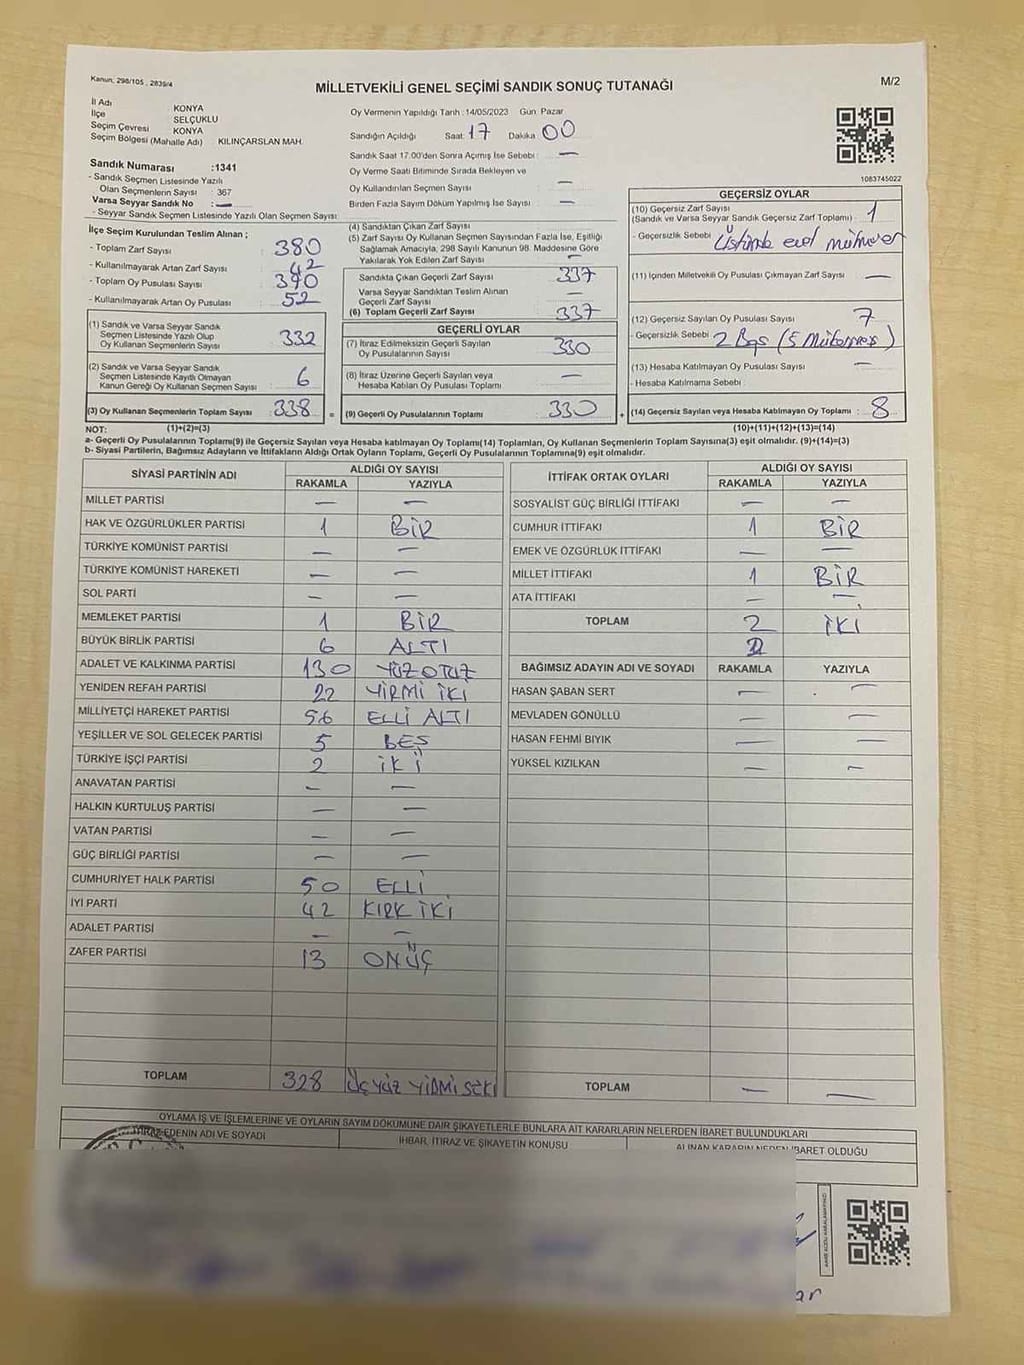 Kanun, 298/105 , 2839/4
MİLLETVEKİLİ GENEL SEÇİMİ SANDIK SONUÇ TUTANAĞI
M/2
İl Adı KONYA
İlçe SELÇUKLU
Seçim Çevresi KONYA
Seçim Bölgesi (Mahalle Adı) KILINÇARSLAN MAH.
Oy Vermenin Yapıldığı Tarih : 14/05/2023 Gün: Pazar
Sandığın Açıldığı Saat: 17 Dakika 00
Sandık Saat 17.00'den Sonra Açımış İse Sebebi : —
Oy Verme Saati Bitiminde Sırada Bekleyen ve
Oy Kullandırılan Seçmen Sayısı : —
Birden Fazla Sayım Döküm Yapılmış İse Sayısı : —
1083745022
Sandık Numarası :1341
- Sandık Seçmen Listesinde Yazılı
Olan Seçmenlerin Sayısı : 367
Varsa Seyyar Sandık No : —
- Seyyar Sandık Seçmen Listesinde Yazılı Olan Seçmen Sayısı:
İlçe Seçim Kurulundan Teslim Alınan ;
- Toplam Zarf Sayısı : 380
- Kullanılmayarak Artan Zarf Sayısı : 42
- Toplam Oy Pusulası Sayısı : 390
- Kullanılmayarak Artan Oy Pusulası : 52
(1) Sandık ve Varsa Seyyar Sandık
Seçmen Listesinde Yazılı Olup
Oy Kullanan Seçmenlerin Sayısı : 332
(2) Sandık ve Varsa Seyyar Sandık
Seçmen Listesinde Kayıtlı Olmayan
Kanun Gereği Oy Kullanan Seçmen Sayısı : 6
(3) Oy Kullanan Seçmenlerin Toplam Sayısı : 338 =
(4) Sandıktan Çıkan Zarf Sayısı
(5) Zarf Sayısı Oy Kullanan Seçmen Sayısından Fazla İse, Eşitliği
Sağlamak Amacıyla, 298 Sayılı Kanunun 98. Maddesine Göre
Yakılarak Yok Edilen Zarf Sayısı : —
Sandıkta Çıkan Geçerli Zarf Sayısı : 337
Varsa Seyyar Sandıktan Teslim Alınan
Geçerli Zarf Sayısı : —
(6) Toplam Geçerli Zarf Sayısı : 337
GEÇERLİ OYLAR
(7) İtiraz Edilmeksizin Geçerli Sayılan
Oy Pusulalarının Sayısı : 330
(8) İtiraz Üzerine Geçerli Sayılan veya
Hesaba Katılan Oy Pusulaları Toplamı : —
(9) Geçerli Oy Pusulalarının Toplamı : 330 +
GEÇERSİZ OYLAR
(10) Geçersiz Zarf Sayısı
(Sandık ve Varsa Seyyar Sandık Geçersiz Zarf Toplamı) : 1
- Geçersizlik Sebebi : Üstünde evet mühür
(11) İçinden Milletvekili Oy Pusulası Çıkmayan Zarf Sayısı : —
(12) Geçersiz Sayılan Oy Pusulası Sayısı : 7
- Geçersizlik Sebebi : 2 Boş (5 Mükerrer)
(13) Hesaba Katılmayan Oy Pusulası Sayısı : —
- Hesaba Katılmama Sebebi :
(14) Geçersiz Sayılan veya Hesaba Katılmayan Oy Toplamı : 8
NOT: (1)+(2)=(3) (10)+(11)+(12)+(13)=(14)
a- Geçerli Oy Pusulalarının Toplamı(9) ile Geçersiz Sayılan veya Hesaba katılmayan Oy Toplamı(14) Toplamları, Oy Kullanan Seçmenlerin Toplam Sayısına(3) eşit olmalıdır. (9)+(14)=(3)
b- Siyasi Partilerin, Bağımsız Adayların ve İttifakların Aldığı Ortak Oyların Toplamı, Geçerli Oy Pusulalarının Toplamına(9) eşit olmalıdır.
SİYASİ PARTİNİN ADI ALDIĞI OY SAYISI
RAKAMLA YAZIYLA
MİLLET PARTİSİ — —
HAK VE ÖZGÜRLÜKLER PARTİSİ 1 BİR
TÜRKİYE KOMÜNİST PARTİSİ — —
TÜRKİYE KOMÜNİST HAREKETİ — —
SOL PARTİ — —
MEMLEKET PARTİSİ 1 BİR
BÜYÜK BİRLİK PARTİSİ 6 ALTI
ADALET VE KALKINMA PARTİSİ 130 YÜZOTUZ
YENİDEN REFAH PARTİSİ 22 YİRMİ İKİ
MİLLİYETÇİ HAREKET PARTİSİ 56 ELLİ ALTI
YEŞİLLER VE SOL GELECEK PARTİSİ 5 BEŞ
TÜRKİYE İŞÇİ PARTİSİ 2 İKİ
ANAVATAN PARTİSİ — —
HALKIN KURTULUŞ PARTİSİ — —
VATAN PARTİSİ — —
GÜÇ BİRLİĞİ PARTİSİ — —
CUMHURİYET HALK PARTİSİ 50 ELLİ
İYİ PARTİ 42 KIRK İKİ
ADALET PARTİSİ — —
ZAFER PARTİSİ 13 ONÜÇ
TOPLAM 328 ÜÇ YÜZ YİRMİ SEKİ
İTTİFAK ORTAK OYLARI ALDIĞI OY SAYISI
RAKAMLA YAZIYLA
SOSYALİST GÜÇ BİRLİĞİ İTTİFAKI — —
CUMHUR İTTİFAKI 1 BİR
EMEK VE ÖZGÜRLÜK İTTİFAKI — —
MİLLET İTTİFAKI 1 BİR
ATA İTTİFAKI — —
TOPLAM 2 İKİ
2
BAĞIMSIZ ADAYIN ADI VE SOYADI RAKAMLA YAZIYLA
HASAN ŞABAN SERT — —
MEVLADEN GÖNÜLLÜ — —
HASAN FEHMİ BIYIK — —
YÜKSEL KIZILKAN — —
TOPLAM — —
OYLAMA İŞ VE İŞLEMLERİNE VE OYLARIN SAYIM DÖKÜMÜNE DAİR ŞİKAYETLERLE BUNLARA AİT KARARLARIN NELERDEN İBARET BULUNDUKLARI
İTİRAZ EDENİN ADI VE SOYADI İHBAR, İTİRAZ VE ŞİKAYETİN KONUSU ALINAN KARARIN NEDEN İBARET OLDUĞU